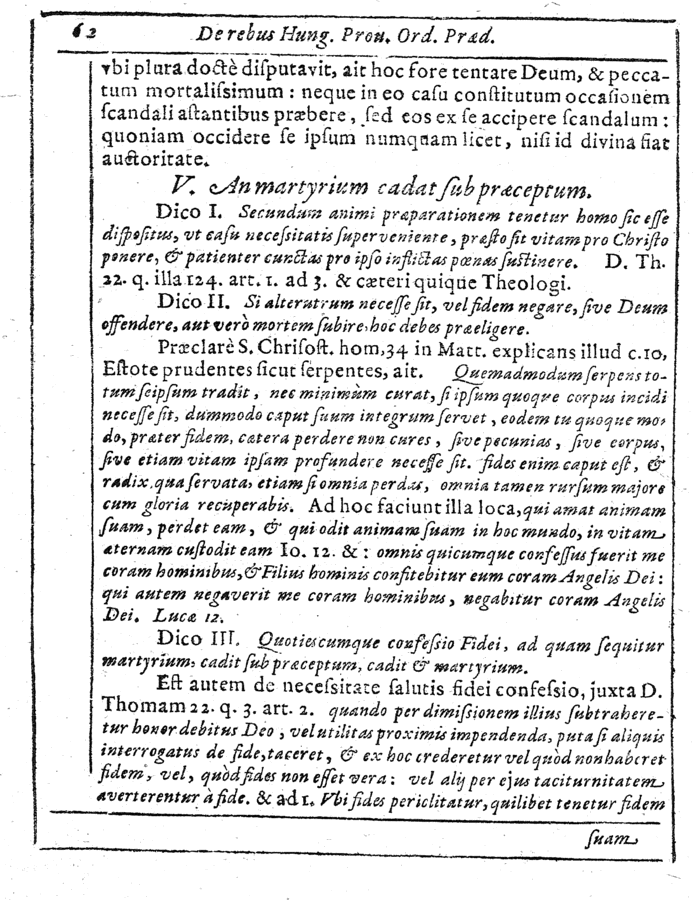 62 De rebus Hung. Prou. Ord. Præd.
vbi plura doctè disputavit, ait hoc fore tentare Deum, & pecca-
tum mortalissimum : neque in eo casu constitutum occasionem
scandali astantibus præbere, sed eos ex se accipere scandalum :
quoniam occidere se ipsum numquam licet, nisi id divina fiat
auctoritate.
V. An martyrium cadat sub præceptum.
Dico I. Secundum animi præparationem tenetur homo sic esse
dispositus, vt casu necessitatis superveniente, præsto sit vitam pro Christo
ponere, & patienter cunctas pro ipso inflictas pœnas sustinere. D. Th.
22. q. illa 124. art. 1. ad 3. & cæteri quique Theologi.
Dico II. Si alterutrum necesse sit, vel fidem negare, sive Deum
offendere, aut verò mortem subire, hoc debes præeligere.
Præclarè S. Chrisost. hom, 34 in Matt. explicans illud c. 10,
Estote prudentes sicut serpentes, ait. Quemadmodum serpens to-
tum seipsum tradit, nec minimùm curat, si ipsum quoque corpus incidi
necesse sit, dummodo caput suum integrum servet, eodem tu quoque mo-
do, præter fidem, cætera perdere non cures, sive pecunias, sive corpus,
sive etiam vitam ipsam profundere necesse sit. fides enim caput est, &
radix, qua servata, etiam si omnia perdas, omnia tamen rursum majore
cum gloria recuperabis. Ad hoc faciunt illa loca, qui amat animam
suam, perdet eam, & qui odit animam suam in hoc mundo, in vitam
æternam custodit eam Io. 12. & : omnis quicumque confessus fuerit me
coram hominibus, & Filius hominis confitebitur eum coram Angelis Dei :
qui autem negaverit me coram hominibus, negabitur coram Angelis
Dei. Lucæ 12.
Dico III. Quotiescumque confessio Fidei, ad quam sequitur
martyrium, cadit sub præceptum, cadit & martyrium.
Est autem de necessitate salutis fidei confessio, juxta D.
Thomam 22. q. 3. art. 2. quando per dimissionem illius subtrahere-
tur honor debitus Deo, vel utilitas proximis impendenda, puta si aliquis
interrogatus de fide, taceret, & ex hoc crederetur vel quòd non haberet
fidem, vel, quòd fides non esset vera : vel alij per ejus taciturnitatem
averterentur à fide. & ad 1. Vbi fides periclitatur, quilibet tenetur fidem
suam